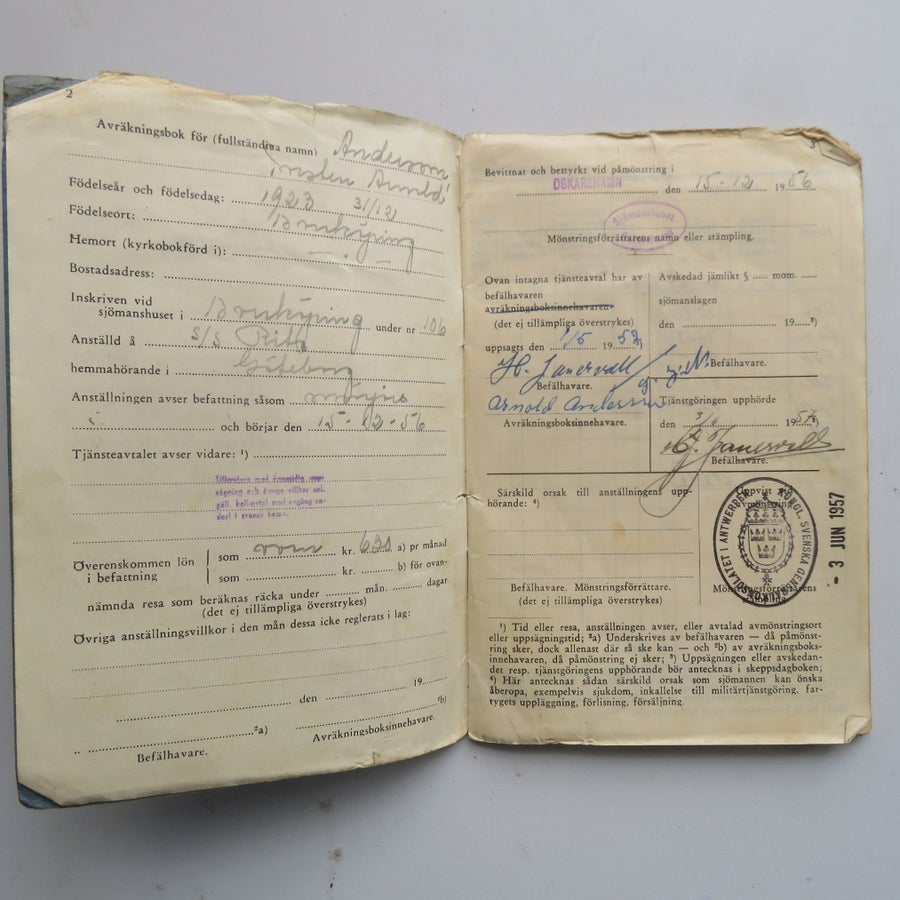 2
Avräkningsbok för (fullständina namn) Anderson
Torsten Arnold
Födelseår och födelsedag: 1923 31/12
Födelseort:
Hemort (kyrkobokförd i):
Bostadsadress:
Inskriven vid
sjömanshuset i under nr 106
Anställd å s/s
hemmahörande i Göteborg
Anställningen avser befattning såsom
och börjar den 15-12-56
Tjänsteavtalet avser vidare: ¹)
Tillsvidare med ömsesidig upp-
sägning och övriga villkor enl.
gäll. koll-avtal med avgång en-
dast i svensk hamn.
Överenskommen lön
i befattning
som kr. a) pr månad
som kr. b) för ovan-
nämnda resa som beräknas räcka under mån. dagar
(det ej tillämpliga överstrykes)
Övriga anställningsvillkor i den mån dessa icke reglerats i lag:
den 19
²a) ²b)
Befälhavare. Avräkningsboksinnehavare.
3
Bevittnat och bestyrkt vid påmönstring i
OSKARSHAMN den 15-12 1956
Sjömanshuset
Mönstringsförrättarens namn eller stämpling.
Ovan intagna tjänsteavtal har av
befälhavaren
avräkningsboksinnehavaren
(det ej tillämpliga överstrykes)
uppsagts den 1/5 1957
H. Janervall
Befälhavare.
Arnold Anderson
Avräkningsboksinnehavare.
Avskedad jämlikt § mom.
sjömanslagen
den 19 ³)
Befälhavare.
Tjänstgöringen upphörde
den 3/6 1957 ³)
Janervall
Befälhavare.
Särskild orsak till anställningens upp-
hörande: ⁴)
Befälhavare. Mönstringsförrättare.
(det ej tillämpliga överstrykes)
Uppvist vid
avmönstring
KUNGL. SVENSKA GENERALKONSULATET I ANTWERPEN
- 3 JUN 1957
Mönstringsförrättarens
stämpling
¹) Tid eller resa, anställningen avser, eller avtalad avmönstringsort
eller uppsägningstid; ²a) Underskrives av befälhavaren — då påmönst-
ring sker, dock allenast där så ske kan — och ²b) av avräkningsboks-
innehavaren, då påmönstring ej sker; ³) Uppsägningen eller avskedan-
det resp. tjänstgöringens upphörande bör antecknas i skeppsdagboken;
⁴) Här antecknas sådan särskild orsak som sjömannen kan önska
åberopa, exempelvis sjukdom, inkallelse till militärtjänstgöring, far-
tygets uppläggning, förlisning, försäljning.